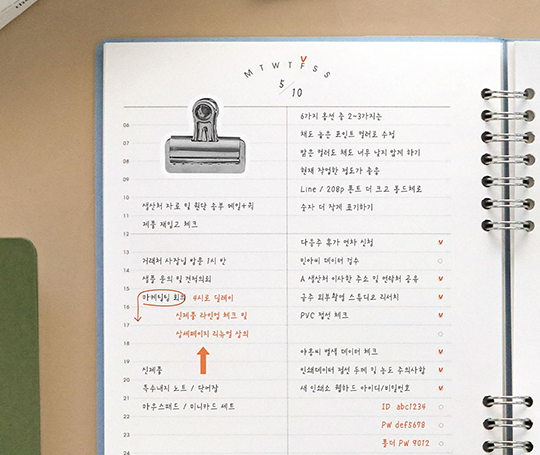 M T W T F S S
V
5/10
06
07
08
09
10
11
12
13
14
15
16
17
18
19
20
21
22
23
24
생산처 자료 및 원단 송부 메일+퀵
제품 재입고 체크
거래처 사장님 방문 1시 반
샘플 문의 및 견적의뢰
마케팅팀 회의 4시로 딜레이
신제품 라인업 체크 및
상세페이지 리뉴얼 상의
신제품
특수내지 노트 / 단어장
마우스패드 / 미니카드 세트
6가지 옵션 중 2-3가지는
채도 높은 포인트 컬러로 수정
밝은 컬러도 채도 너무 낮지 않게 하기
현재 작업한 정도가 좋음
Line / 208p 폰트 더 크고 볼드체로
숫자 더 작게 표기하기
다음주 휴가 연차 신청
민아씨 데이터 접수
A 생산처 이사한 주소 및 연락처 공유
금주 외부촬영 스튜디오 리서치
PVC 점선 체크
별색 데이터 체크
인쇄데이터 점선 두께 및 농도 주의사항
새 인쇄소 웹하드 아이디/비밀번호
ID abc1234
PW def5678
폴더 PW 9012